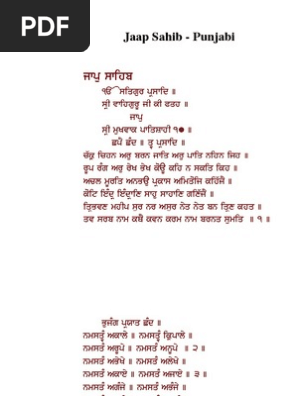 PDF
Jaap Sahib - Punjabi
ਜਾਪੁ ਸਾਹਿਬ
ੴ ਸਤਿਗੁਰ ਪ੍ਰਸਾਦਿ ॥
ਸ੍ਰੀ ਵਾਹਿਗੁਰੂ ਜੀ ਕੀ ਫਤਹ ॥
ਜਾਪੁ
ਸ੍ਰੀ ਮੁਖਵਾਕ ਪਾਤਿਸਾਹੀ ੧੦ ॥
ਛਪੈ ਛੰਦ ॥ ਤ੍ਵ ਪ੍ਰਸਾਦਿ ॥
ਚੱਕ੍ਰ ਚਿਹਨ ਅਰੁ ਬਰਨ ਜਾਤਿ ਅਰੁ ਪਾਤਿ ਨਹਿਨ ਜਿਹ ॥
ਰੂਪ ਰੰਗ ਅਰੁ ਰੇਖ ਭੇਖ ਕੋਊ ਕਹਿ ਨ ਸਕਤਿ ਕਿਹ ॥
ਅਚਲ ਮੂਰਤਿ ਅਨਭਉ ਪ੍ਰਕਾਸ ਅਮਿਤੋਜਿ ਕਹਿੱਜੈ ॥
ਕੋਟਿ ਇੰਦ੍ਰ ਇੰਦ੍ਰਾਣਿ ਸਾਹੁ ਸਾਹਾਣਿ ਗਣਿੱਜੈ ॥
ਤ੍ਰਿਭਵਣ ਮਹੀਪ ਸੁਰ ਨਰ ਅਸੁਰ ਨੇਤ ਨੇਤ ਬਨ ਤ੍ਰਿਣ ਕਹਤ ॥
ਤਵ ਸਰਬ ਨਾਮ ਕਥੈ ਕਵਨ ਕਰਮ ਨਾਮ ਬਰਨਤ ਸੁਮਤਿ ॥ ੧ ॥
ਭੁਜੰਗ ਪ੍ਰਯਾਤ ਛੰਦ ॥
ਨਮਸਤ੍ਵੰ ਅਕਾਲੇ ॥ ਨਮਸਤ੍ਵੰ ਕ੍ਰਿਪਾਲੇ ॥
ਨਮਸਤੰ ਅਰੂਪੇ ॥ ਨਮਸਤੰ ਅਨੂਪੇ ॥ ੨ ॥
ਨਮਸਤੰ ਅਭੇਖੇ ॥ ਨਮਸਤੰ ਅਲੇਖੇ ॥
ਨਮਸਤੰ ਅਕਾਏ ॥ ਨਮਸਤੰ ਅਜਾਏ ॥ ੩ ॥
ਨਮਸਤੰ ਅਗੰਜੇ ॥ ਨਮਸਤੰ ਅਭੰਜੇ ॥